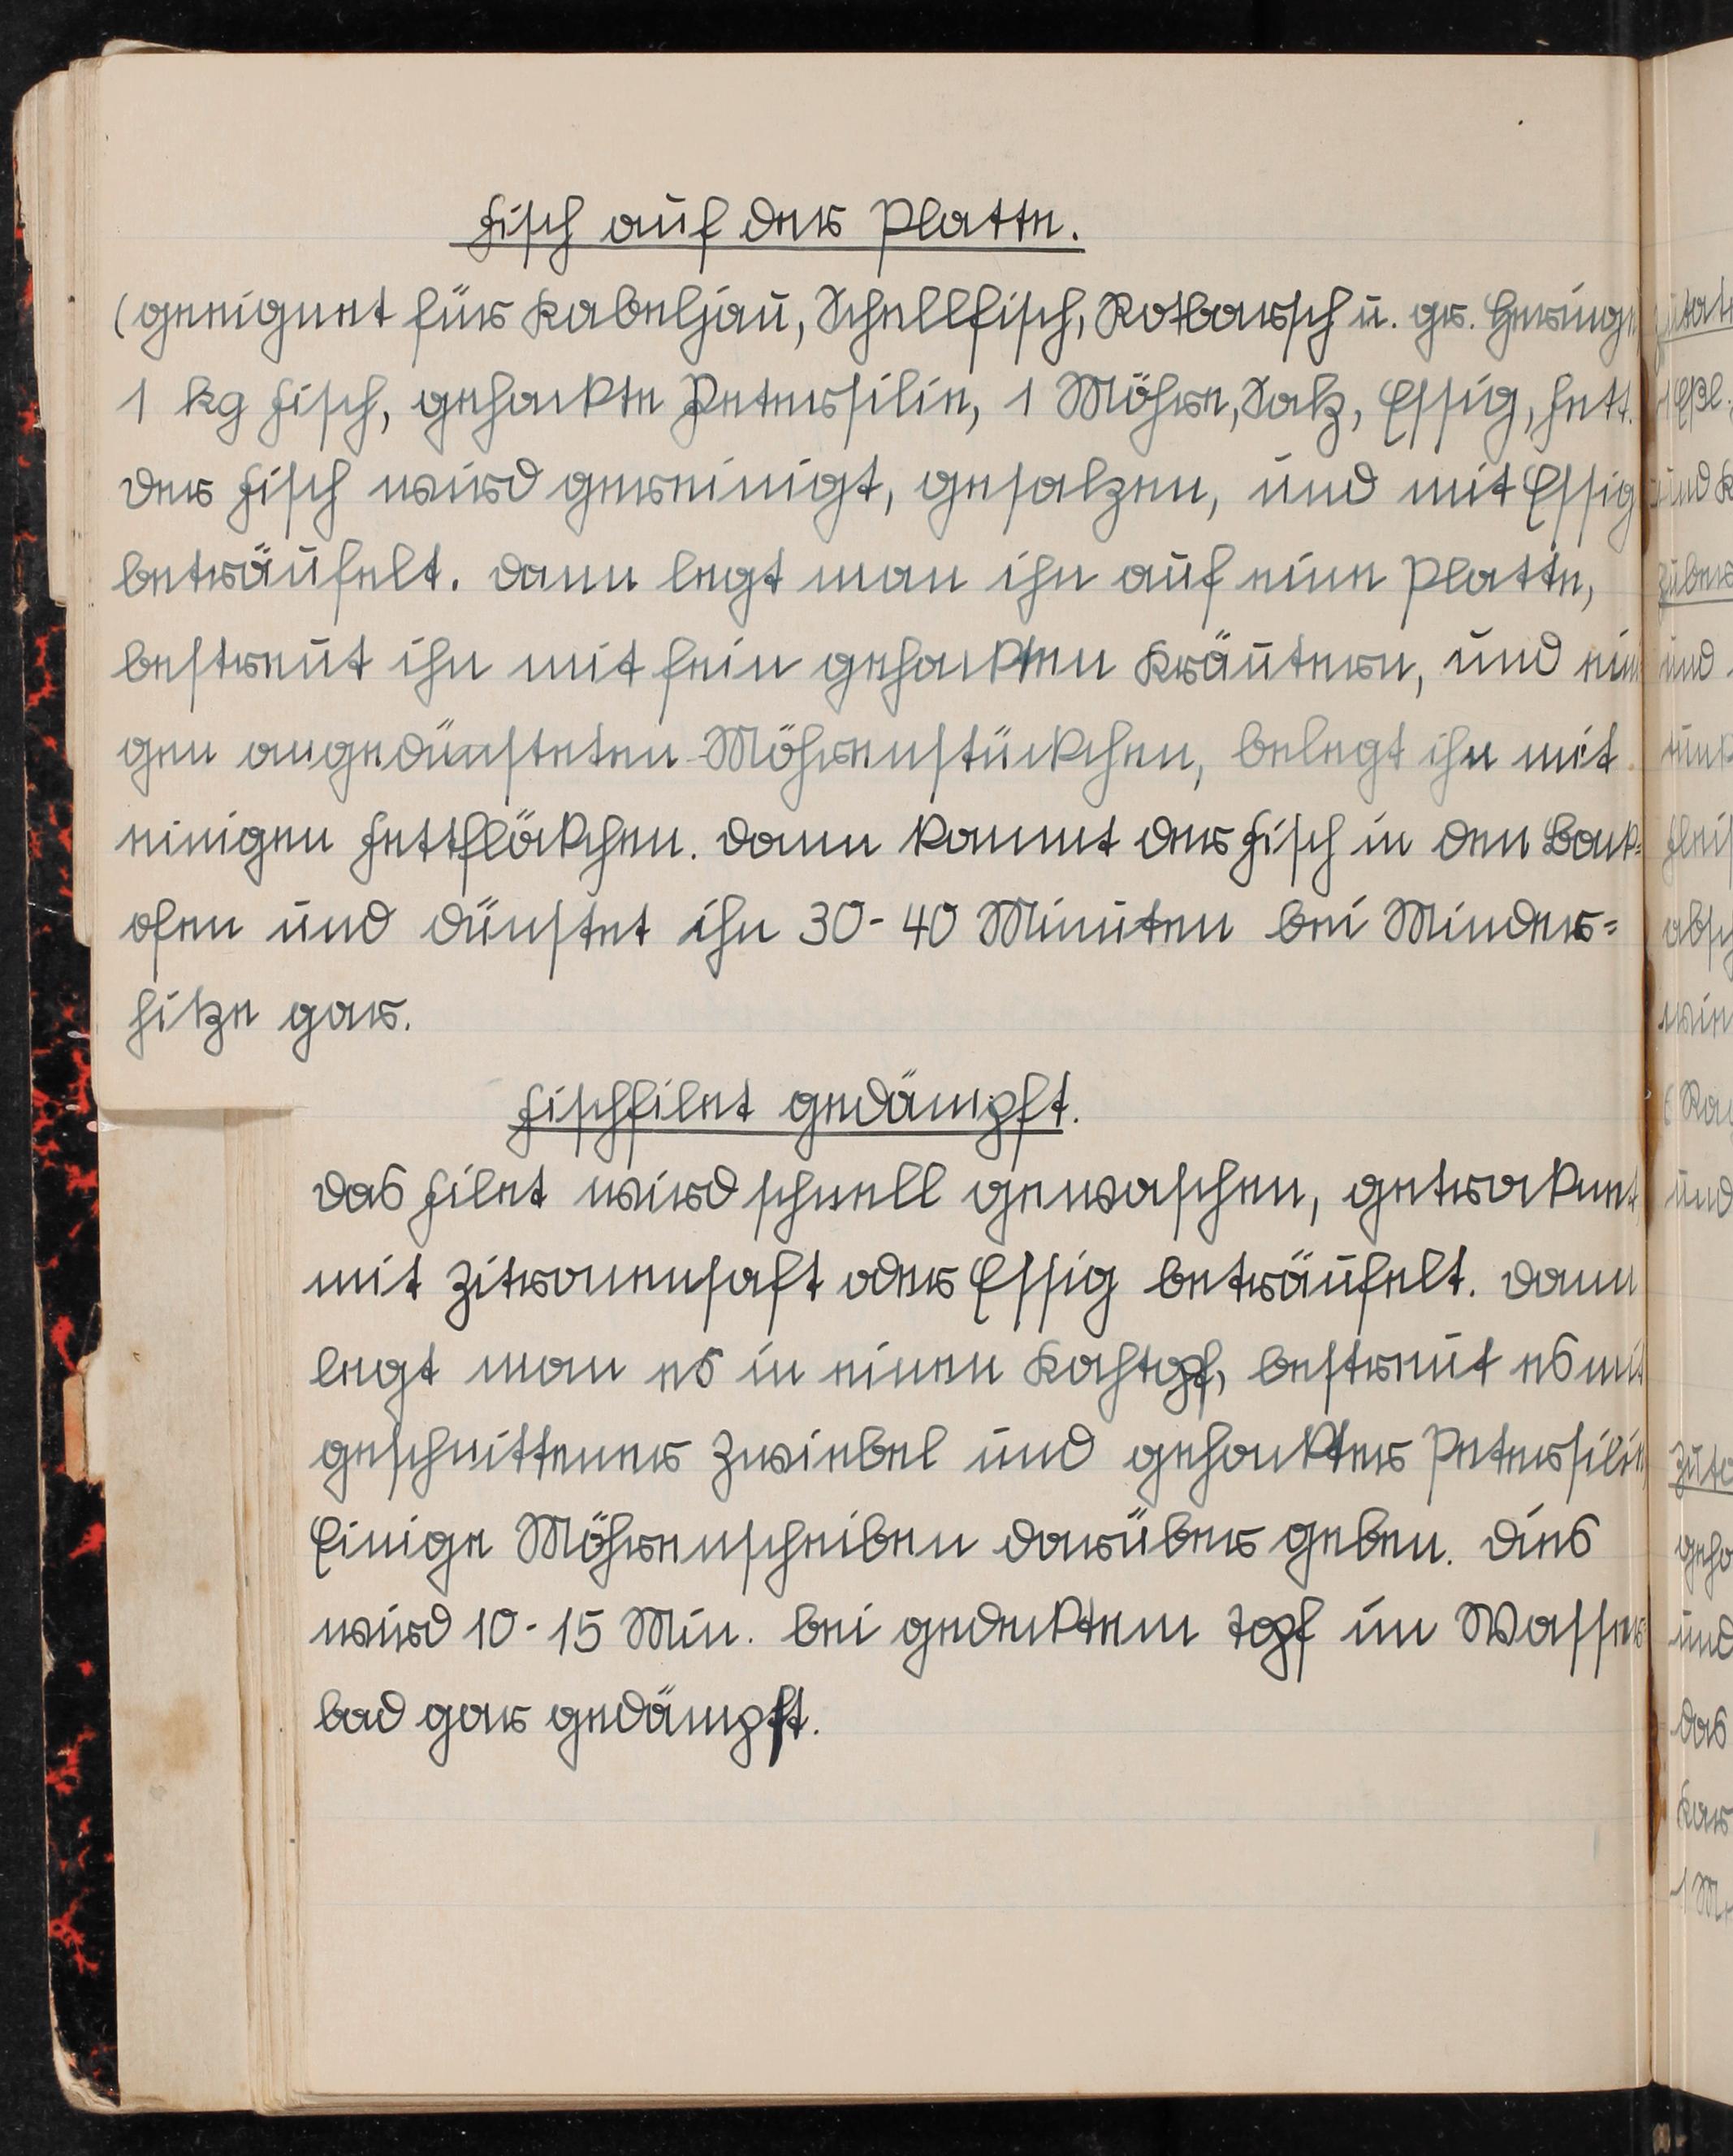 Fisch auf der Platte.
(geeignet für Kabeljau, Schellfisch, Rotbarsch u. gr. Heringe
1 kg Fisch, gehackte Petersilie, 1 Möhre, Salz, Essig, Fett.
Der Fisch wird gereinigt, gesalzen, und mit Essig
beträufelt. Dann legt man ihn auf eine Platte,
bestreut ihn mit fein gehackten Kräutern, und eini
gen angedünsteten Möhrenstückchen, belegt ihn mit
einigen Fettflökchen. Dann kommt der Fisch in den Back-
ofen und dünstet ihn 30-40 Minuten bei Minder=
hitze gar.
Fischfilet gedämpft.
Das Filet wird schnell gewaschen, getroknet,
mit Zitronensaft oder Essig beträufelt. Dann
legt man es in einen Kochtopf, bestreut es mit
geschnittener Zwiebel und gehackter Petersilie,
Einige Möhrenscheiben darüber geben. Dies
wird 10-15 Min. bei gedecktem Topf im Wasser
bad gar gedämpft.